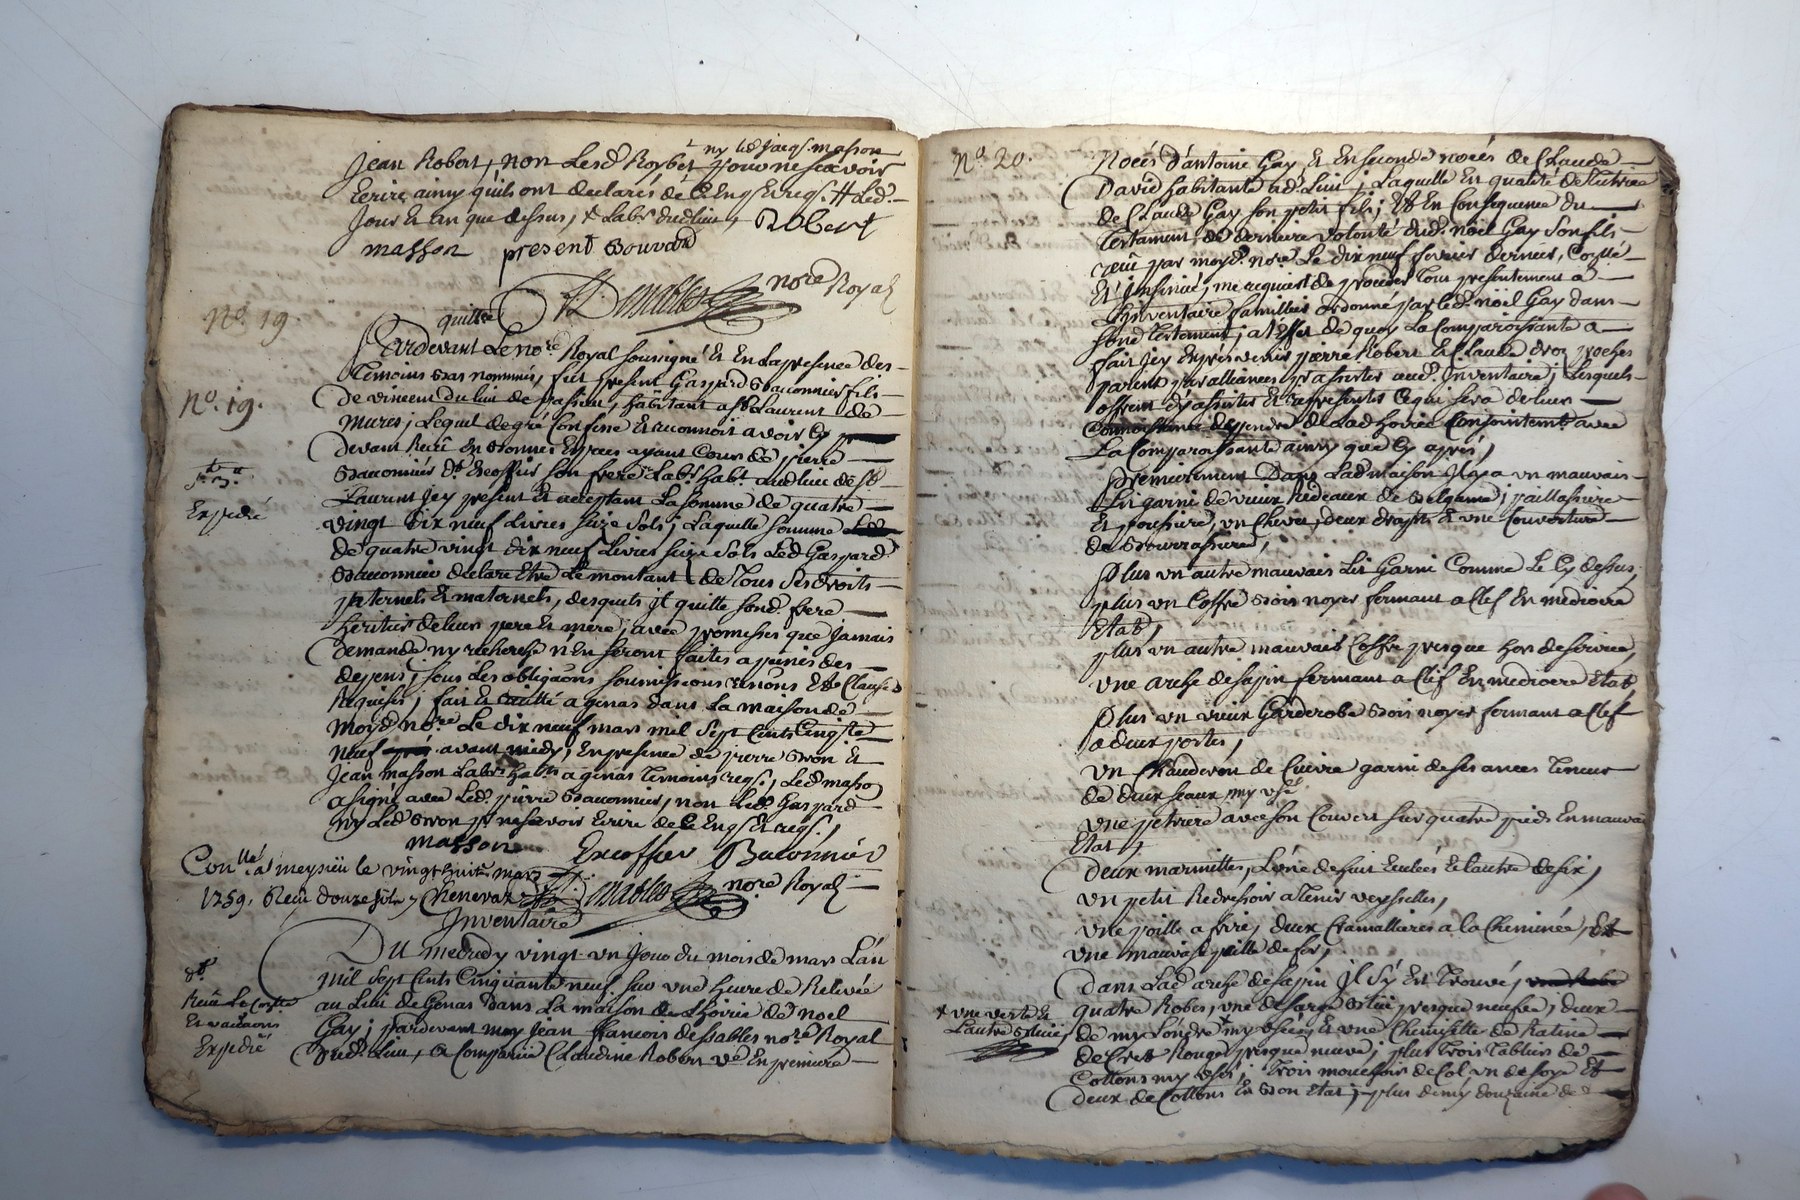 ny led Jacq. masson
Jean Robert, non Lesd Roybet pour ne scavoir
Ecrire ainsy quils ont declarés de ce Enqs Et reqs. Led.
Jour Et an que dessus, & Labr dudlieu, Robert
masson present Bouvard
nore Royal
No. 19
quittce
Pardevant Le nore Royal soussigné Et En La presence des
No. 19.
Temoins Bas nommés, fut present Gaspard Baconnier fils
de vincent du lieu de , habitant a St Laurent de
mures, Lequel de gré Confesse Et reconnoit avoir Cy
devant Receu En Bonnes Especes ayant Cours de pierre
Baconnier dt Excoffier son frere Labr habt audlieu de St
Laurent Jcy present Et acceptant La somme de quatre
Expedié
vingt dix neuf Livres seize sols, Laquelle somme
de quatre vingt dix neuf Livres seize sols Led Gaspard
Baconnier declare Etre Le montant de Tous ses droits
paternels Et maternels, desquels jl quitte sond. frere
heritier de leur pere Et mere, avec promesses que jamais
demande ny recherche n'En seront faites a peines des
depens, sous Les obligaons soumissions renons Et Clauses
Requises, fait Et a genas dans La maison de
moyd. nore Le dix neuf mars mil sept Cents Cinqte
neuf avant midy, En presence de pierre Et
Jean masson Labrs habts a genas Temoins reqs, Led masson
a signé avec Led. pierre Baconnier, non Led. Gaspard
ny Led pr ne scavoir Ecrire de ce Enqs Et reqs.,
masson Excoffier Baconnier
Conllé a meysieu le vingt huit mars
1759. Receu douze sols Chenevaz nore Royal
Inventaire
Du mecredy vingt un Jour du mois de mars L'an
mil sept Cents Cinquante neuf sur une heure de Relevée
au Lieu de Genas dans La maison de Lhoirie de noel
Gay, pardevant moy Jean francois dessables nore Royal
Expedié
dud. Lieu, a Comparue Claudine Robert ve En premiere
No. 20.
Noces d'antoine Gay Et En seconde noces de Claude
David habitante ad. Lieu, Laquelle En qualité de Tutrice
de Claude Gay son petit fils, Et En Consequence du
Testament de derniere volonté dud. noel Gay son fils
receu par moyd. nore Le dix neuf fevrier dernier, Conllé
Et Jnsinué, me requiert de proceder Tout presentement a
Linventaire familier ordonné par led. noel Gay dans
sond Testament, a L'effet de quoy La Comparoissante a
fait Jcy Enprevenir pierre Robert Et Claude droz proches
parents par alliances p assister aud. Inventaire, Lesquels
offrent d'y assister Et representer Ce qui sera de leur
Connoissance dependre de Lad hoirie Conjointemt avec
La Comparoissante ainsy que Cy apres,
Premierement Dans Lad maison Jl y a un mauvais
Lit garni de vieux Rideaux de Bergame, paillassiere
Et , un Chevet, deux draps Et une Couverture
de Bourrassiere,
Plus un autre mauvais Lit Garni Comme Le Cy dessus,
plus un Coffre Bois noyer fermant a Clef En mediocre
Etat,
plus un autre mauvais Coffre presque hors de service,
une arche de sapin fermant a Clef En mediocre Etat,
Plus un vieux Garderobe Bois noyer fermant a Clef
a deux portes,
un Chauderon de Cuivre garni de ses ances Teneur
de deux seaux my usé
une petriere avec son Couvert sur quatre pieds En mauvais
Etat,
deux marmittes, L'une de huit Ecuées Et l'autre de six,
un petit Redressoir a Tenir veysselles,
une poille a frire, deux Cramallieres a la Cheminée, Et
une mauvaise paille de fer,
dans Lad arche de sapin Jl s'y Est Trouvé, une Robe
quatre Robes, une de sarge Bleue presque neufve, deux
+ une verte Et
L'autre Bleue
de my Londre + my usées, Et une Chemisette de Ratine
de Crets Rouge presque neuve, plus Trois Tabliers de
Cottons my usés, Trois mouchoirs de Col un de soye Et
deux de Cottons En Bon Etat, plus demy douzaine de